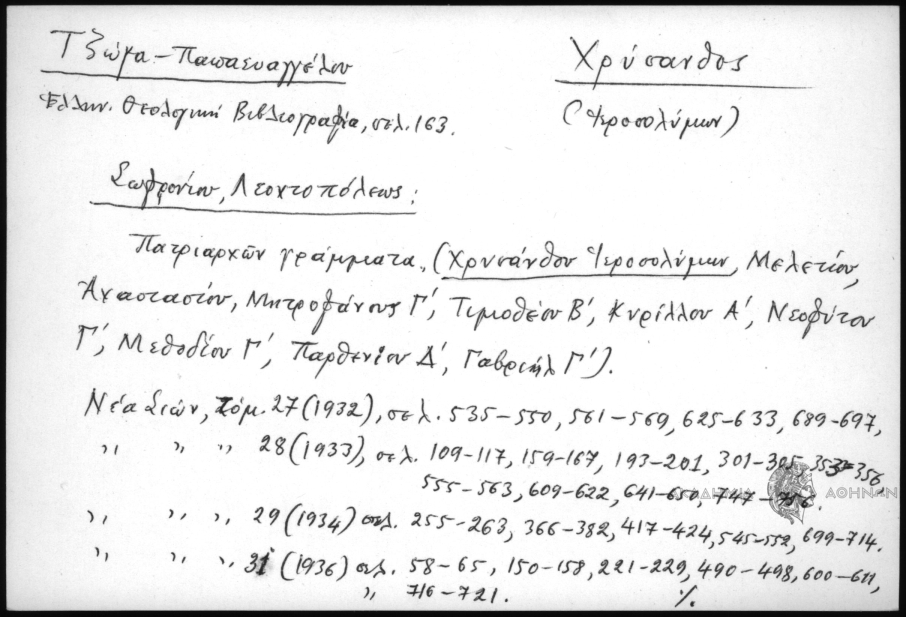 Τζώγα-Παπαευαγγέλου
Χρύσανθος
Ἑλλην. Θεολογική Βιβλιογραφία, σελ. 163.
(Ἱεροσολύμων)
Σωφρονίου, Λεοντοπόλεως:
Πατριαρχῶν γράμματα, (Χρυσάνθου Ἱεροσολύμων, Μελετίου,
Ἀναστασίου, Μητροφάνους Γ', Τιμοθέου Β', Κυρίλλου Α', Νεοφύτου
Γ', Μεθοδίου Γ', Παρθενίου Δ', Γαβριήλ Γ').
Νέα Σιών, τόμ. 27 (1932), σελ. 535-550, 561-569, 625-633, 689-697,
,, ,, ,, 28 (1933), σελ. 109-117, 159-167, 193-201, 301-305, 353-356,
555-563, 609-622, 641-650, 747-756.
ΑΚΑΔΗΜΙΑ ΑΘΗΝΩΝ
,, ,, ,, 29 (1934) σελ. 255-263, 366-382, 417-424, 545-552, 699-714.
,, ,, ,, 31 (1936) σελ. 58-65, 150-158, 221-229, 490-498, 600-611,
,, 716-721. ./.